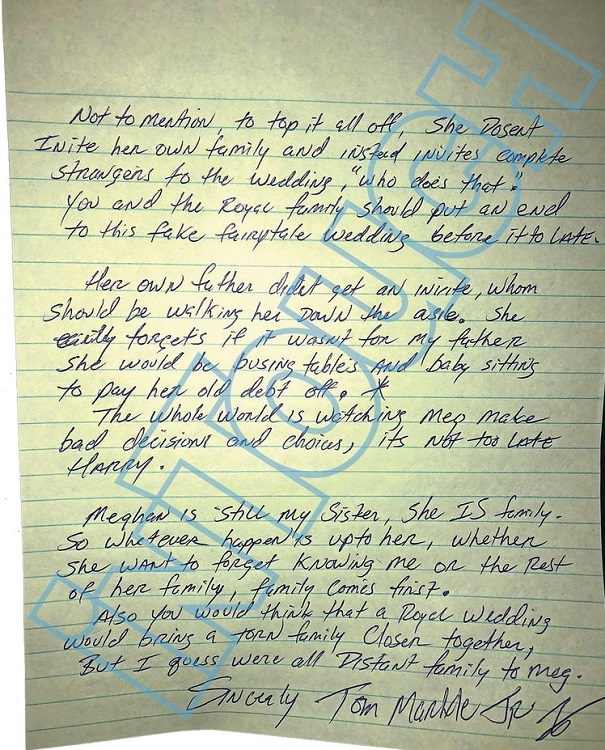 Not to mention, to top it all off, She Dosent
Inite her own family and instead invites complete
strangers to the wedding, "who does that."
You and the Royal family should put an end
to this fake fairytale wedding before it to LATE.
Her own father didnt get an inivite, whom
should be walking her Down the asle. She
forgets if it wasnt for my father
She would be busing tables AND baby sitting
to pay her old debt off. *
The whole world is watching Meg make
bad decisions and choices, its NOT too LATE
HARRY.
Meghan is still my Sister, She IS family.
So whatever happen is upto her, whether
She want to forget Knowing me or the Rest
of her family, family comes first.
Also you would think that a Royal Wedding
would bring a torn family Closer together,
But I guess were all Distant family to Meg.
Sincerly Tom Markle Jr
inTouch